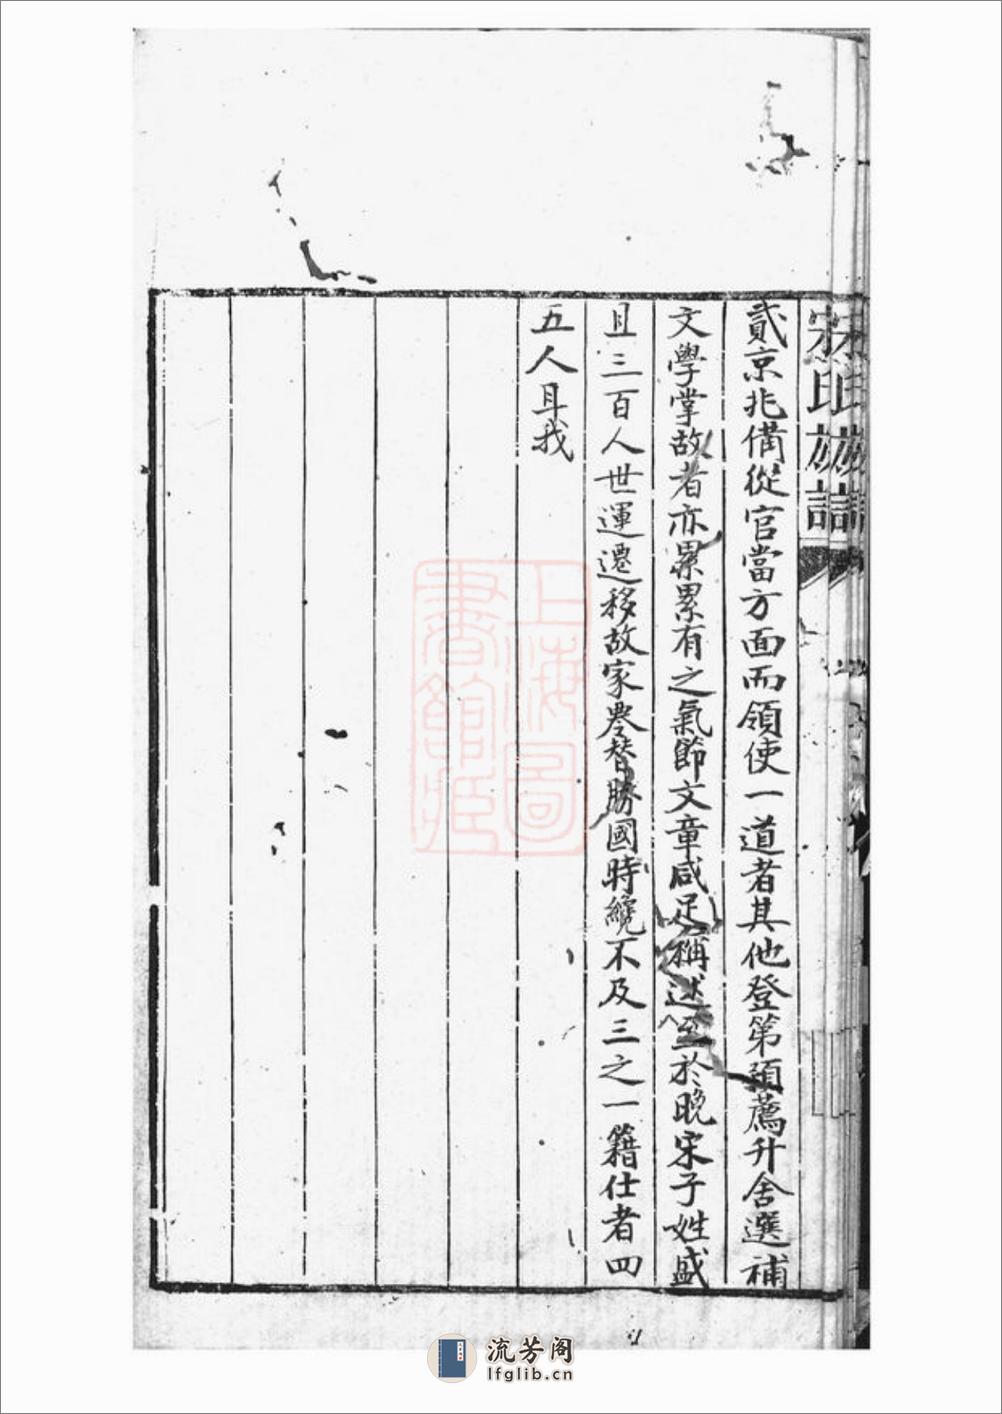 貳京兆備從官當方面而領使一道者其他登第預薦升舍選補
文學掌故者亦累累有之氣節文章咸足稱述至於晚宋子姓盛
且三百人世運遷移故家農替勝國時纔不及三之一籍仕者四
五人耳我
上海圖書館藏
流芳阁
lfglib.cn